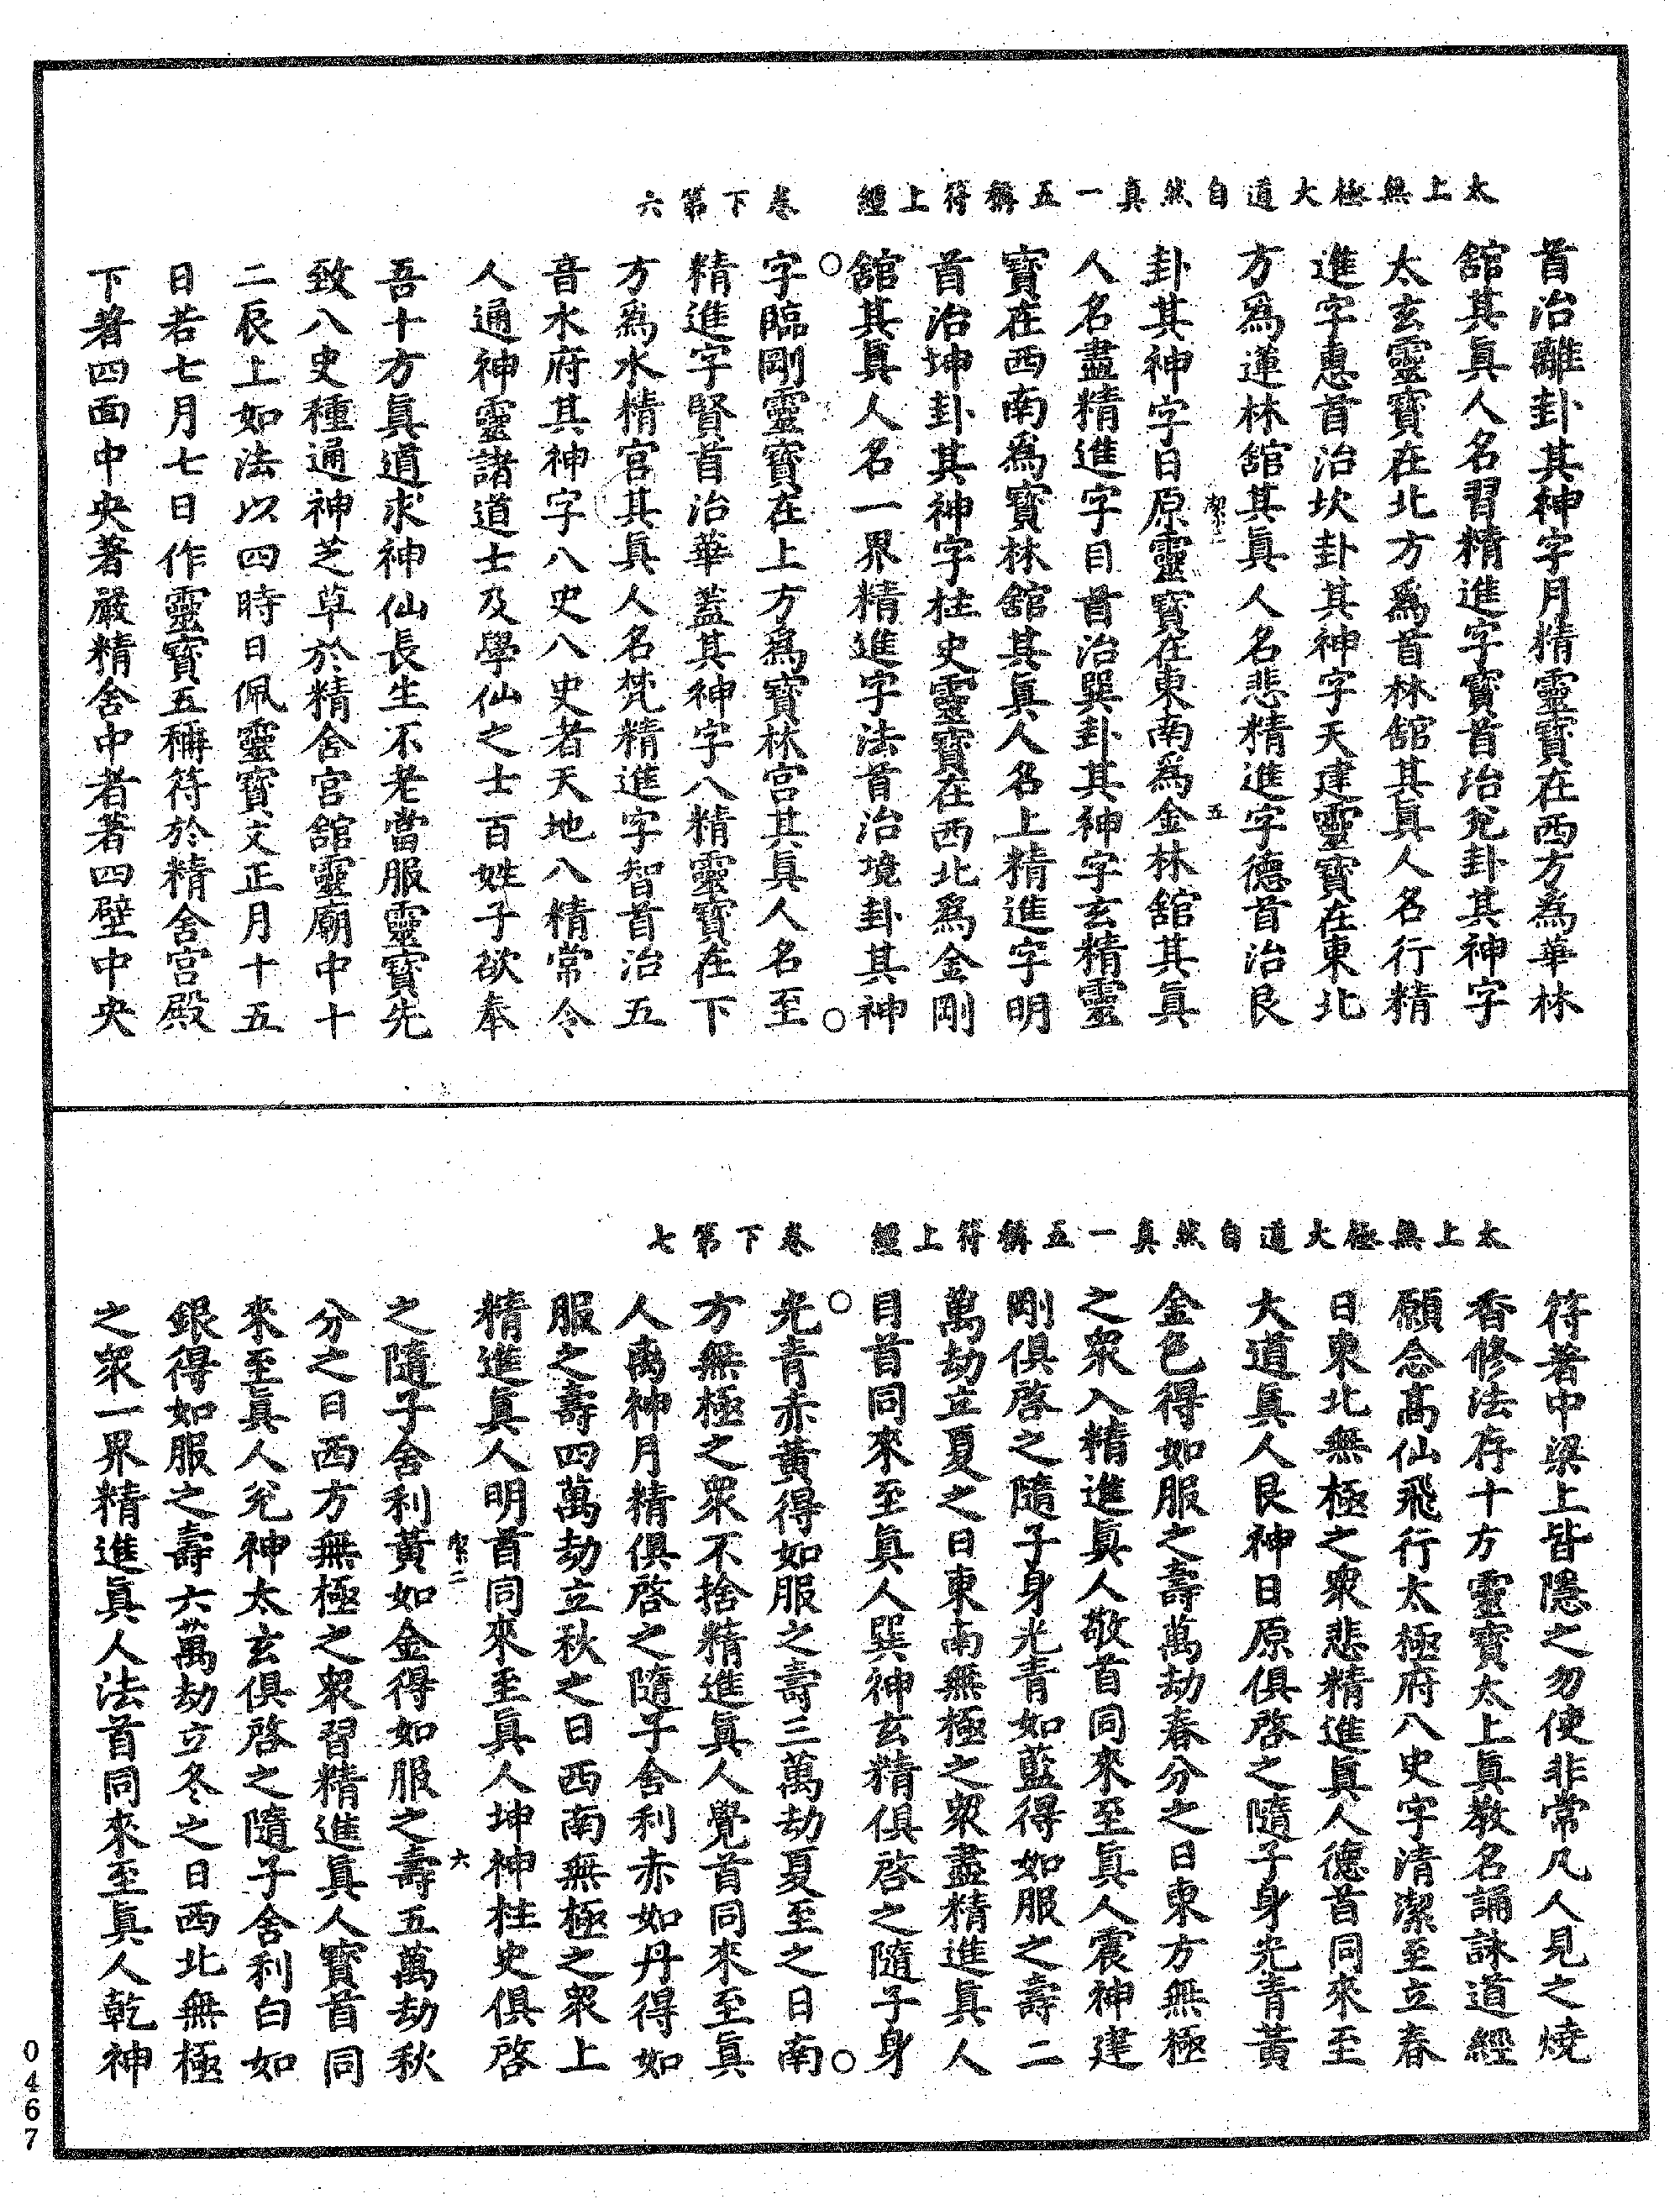 太上無極大道自然真一五稱符上經　卷下第六
首治離卦其神字月精靈寶在西方為華林
舘其真人名習精進字寶首治兊卦其神字
太玄靈寶在北方為首林舘其真人名行精
進字惠首治坎卦其神字天建靈寶在東北
方為蓮林舘其真人名悲精進字德首治艮
五
卦其神字日原靈寶在東南為金林舘其真
人名盡精進字目首治巽卦其神字玄精靈
寶在西南為寶林舘其真人名上精進字明
首治坤卦其神字柱史靈寶在西北為金剛
舘其真人名一界精進字法首治境卦其神
字臨剛靈寶在上方為寶林宮其真人名至
精進字賢首治華蓋其神字八精靈寶在下
方為水精宮其真人名梵精進字智首治五
音水府其神字八史八史者天地八精常令
人通神靈諸道士及學仙之士百姓子欲奉
吾十方真道求神仙長生不老當服靈寶先
致八史種通神芝草於精舍宮舘靈廟中十
二辰上如法以四時日佩靈寶文正月十五
日若七月七日作靈寶五稱符於精舍宮殿
下著四面中央著嚴精舍中者著四壁中央
太上無極大道自然真一五稱符上經　卷下第七
符著中梁上皆隱之勿使非常凡人見之燒
香修法存十方靈寶太上真教名誦詠道經
願念高仙飛行太極府八史字清潔至立春
日東北無極之眾悲精進真人德首同來至
大道真人艮神日原俱啓之隨子身光青黃
金色得如服之壽萬劫春分之日東方無極
之眾入精進真人敬首同來至真人震神建
剛俱啓之隨子身光青如藍得如服之壽二
萬劫立夏之日東南無極之眾盡精進真人
目首同來至真人巽神玄精俱啓之隨子身
光青赤黃得如服之壽三萬劫夏至之日南
方無極之眾不捨精進真人覺首同來至真
人离神月精俱啓之隨子舍利赤如丹得如
服之壽四萬劫立秋之日西南無極之眾上
精進真人明首同來至真人坤神柱史俱啓
六
之隨子舍利黃如金得如服之壽五萬劫秋
分之日西方無極之眾習精進真人寶首同
來至真人兊神太玄俱啓之隨子舍利白如
銀得如服之壽六萬劫立冬之日西北無極
之眾一界精進真人法首同來至真人乾神
0467